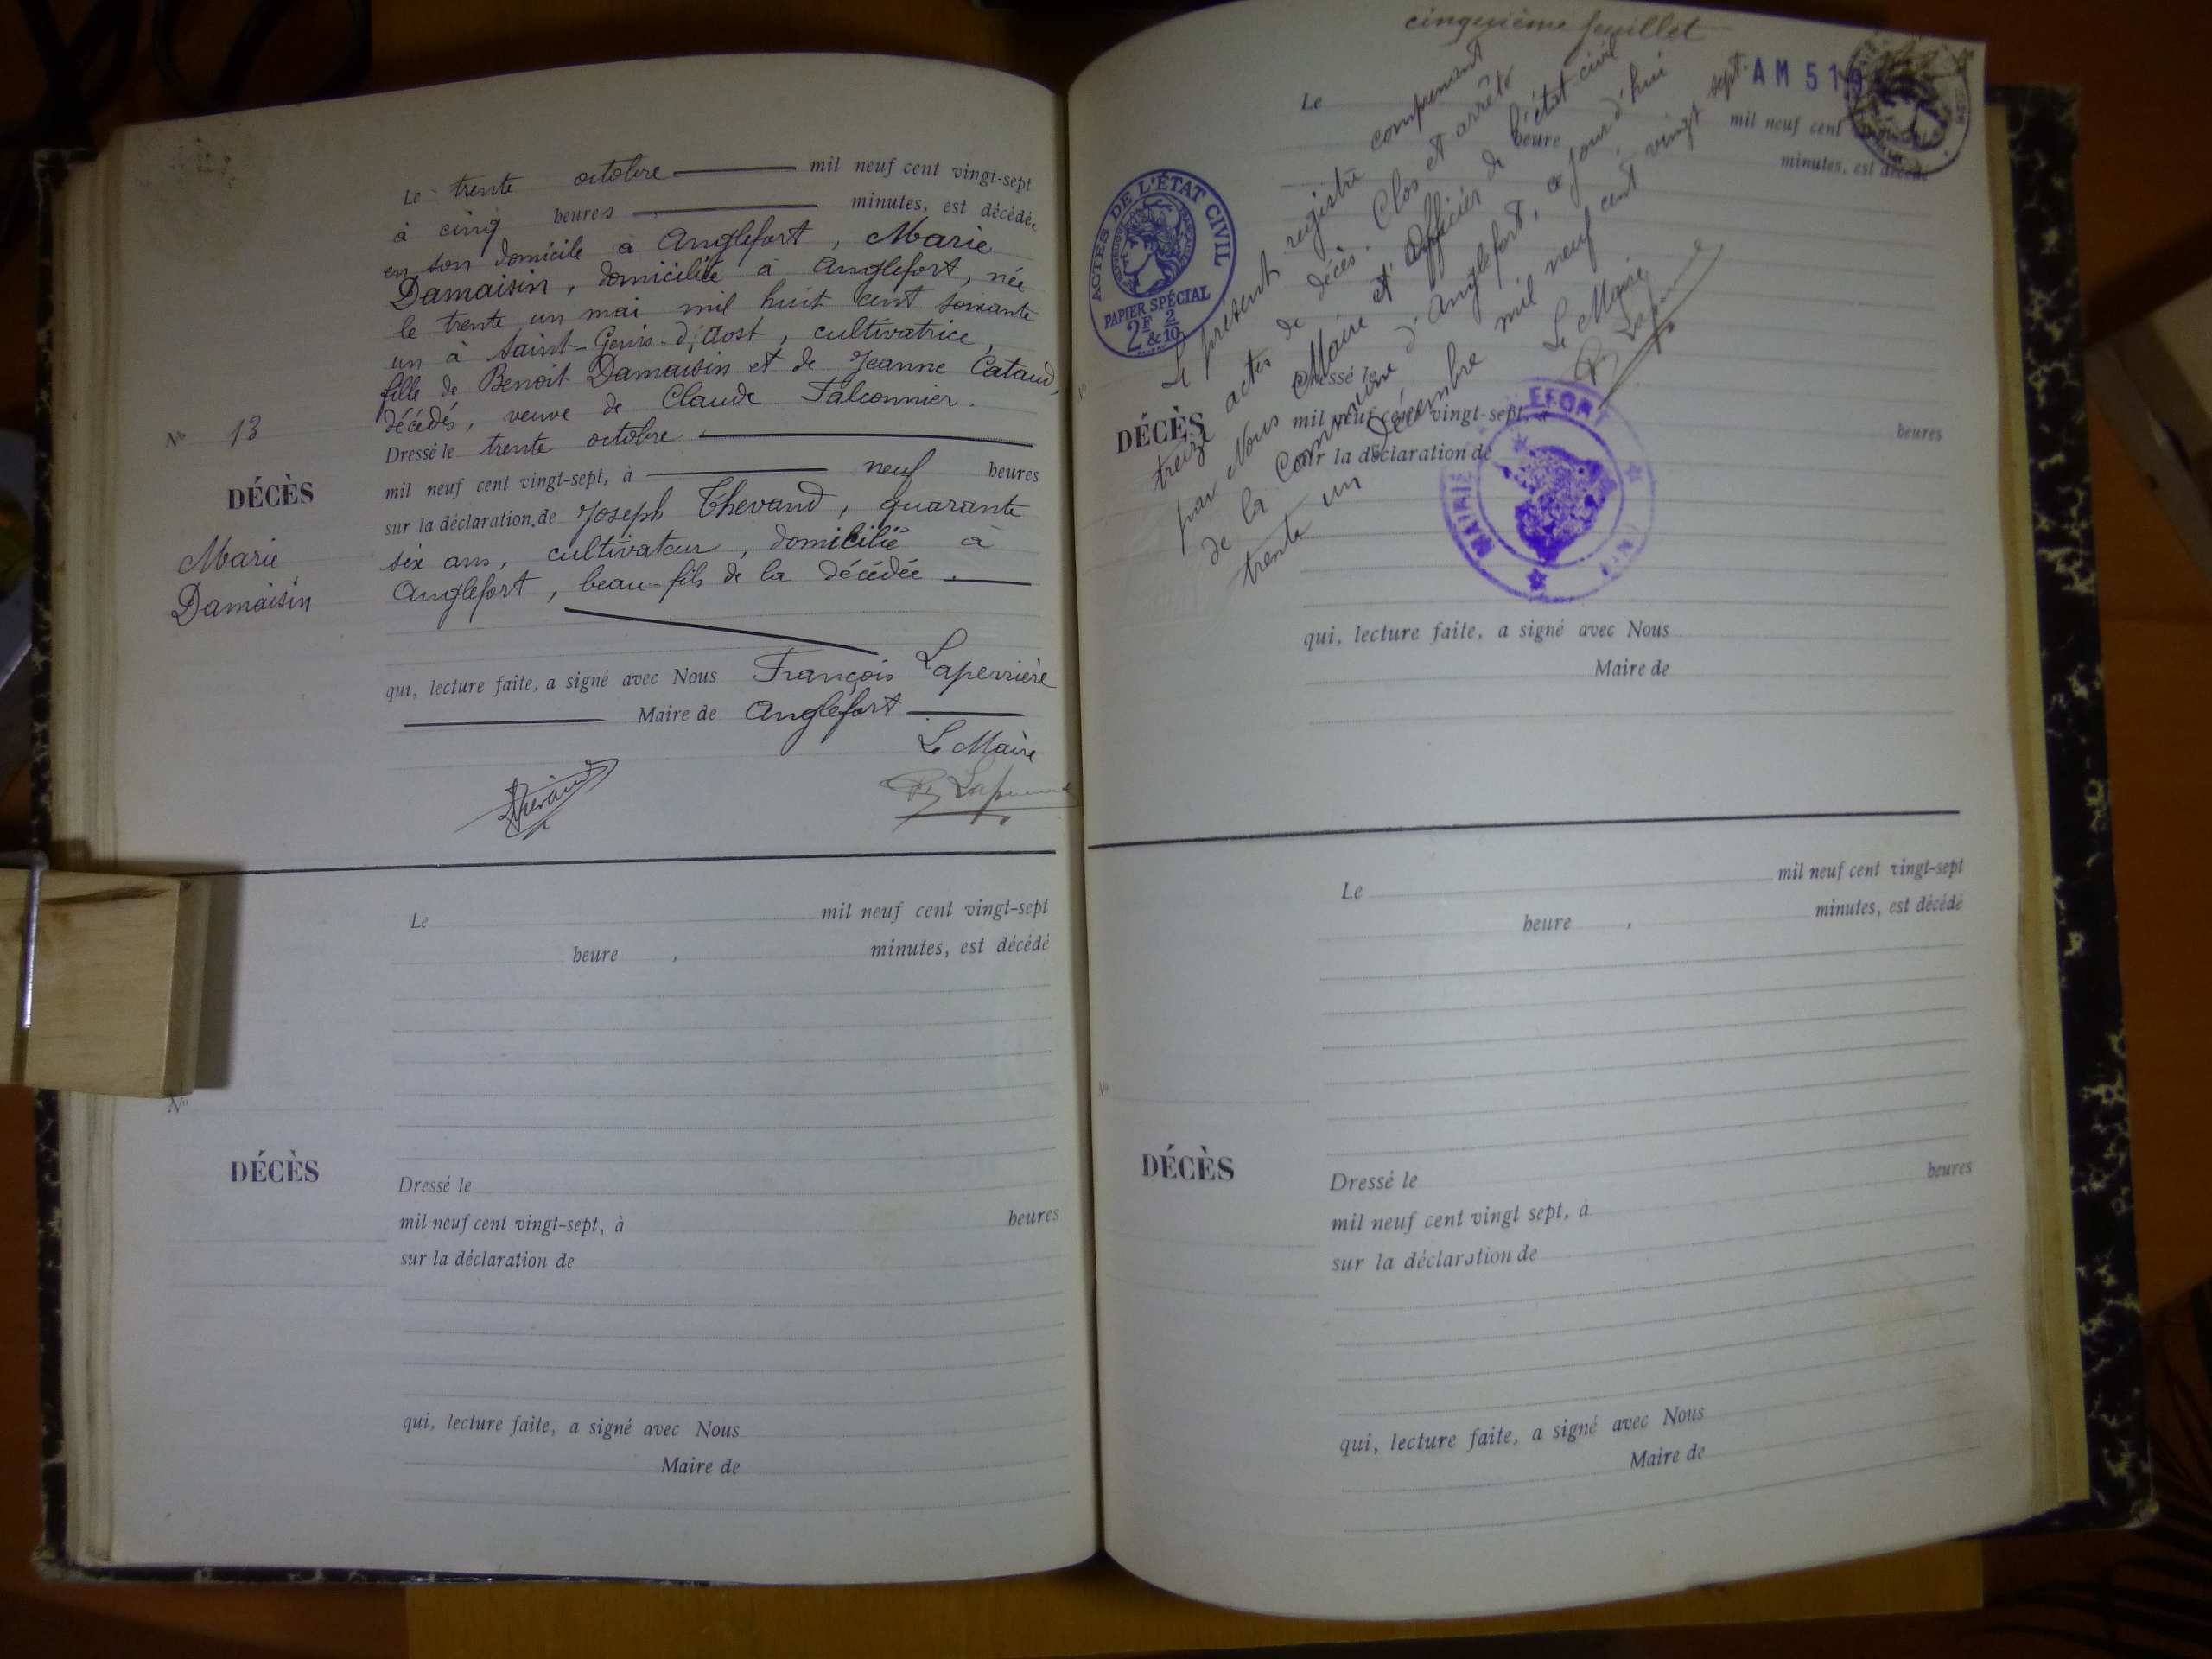 Le trente octobre mil neuf cent vingt-sept
à cinq heures minutes, est décédé,
en son domicile à Anglefort, Marie
Damaisin, domiciliée à Anglefort, née
le trente un mai mil huit cent soixante
un à Saint-Genis-d'Aost, cultivatrice,
fille de Benoit Damaisin et de Jeanne Cataud,
décédés, veuve de Claude Falconnier.
Nº 13
Dressé le trente octobre
mil neuf cent vingt-sept, à neuf heures
DÉCÈS
sur la déclaration de Joseph Thevand, quarante
six ans, cultivateur, domicilié à
Marie
Anglefort, beau-fils de la décédée.
Damaisin
qui, lecture faite, a signé avec Nous François Laperrière
Maire de Anglefort
Le Maire
Le mil neuf cent vingt-sept
heure , minutes, est décédé
Nº
DÉCÈS
Dressé le
mil neuf cent vingt-sept, à heures
sur la déclaration de
qui, lecture faite, a signé avec Nous
Maire de
cinquième feuillet
AM 51
Le mil neuf cent
heure minutes, est décédé
ACTES DE L'ÉTAT CIVIL
PAPIER SPÉCIAL
2F & 2/10
Le présent registre comprenant
treize actes de décès. Clos et arrêté
par Nous Maire et Officier de l'état civil
de la Commune d'Anglefort, ce jour d'hui
trente un Décembre mil neuf cent vingt sept.
Le Maire
Dressé le
DÉCÈS
mil neuf cent vingt-sept, à heures
sur la déclaration de
MAIRIE
EFORT
qui, lecture faite, a signé avec Nous
Maire de
Le mil neuf cent vingt-sept
heure , minutes, est décédé
Nº
DÉCÈS
Dressé le
mil neuf cent vingt sept, à heures
sur la déclaration de
qui, lecture faite, a signé avec Nous
Maire de